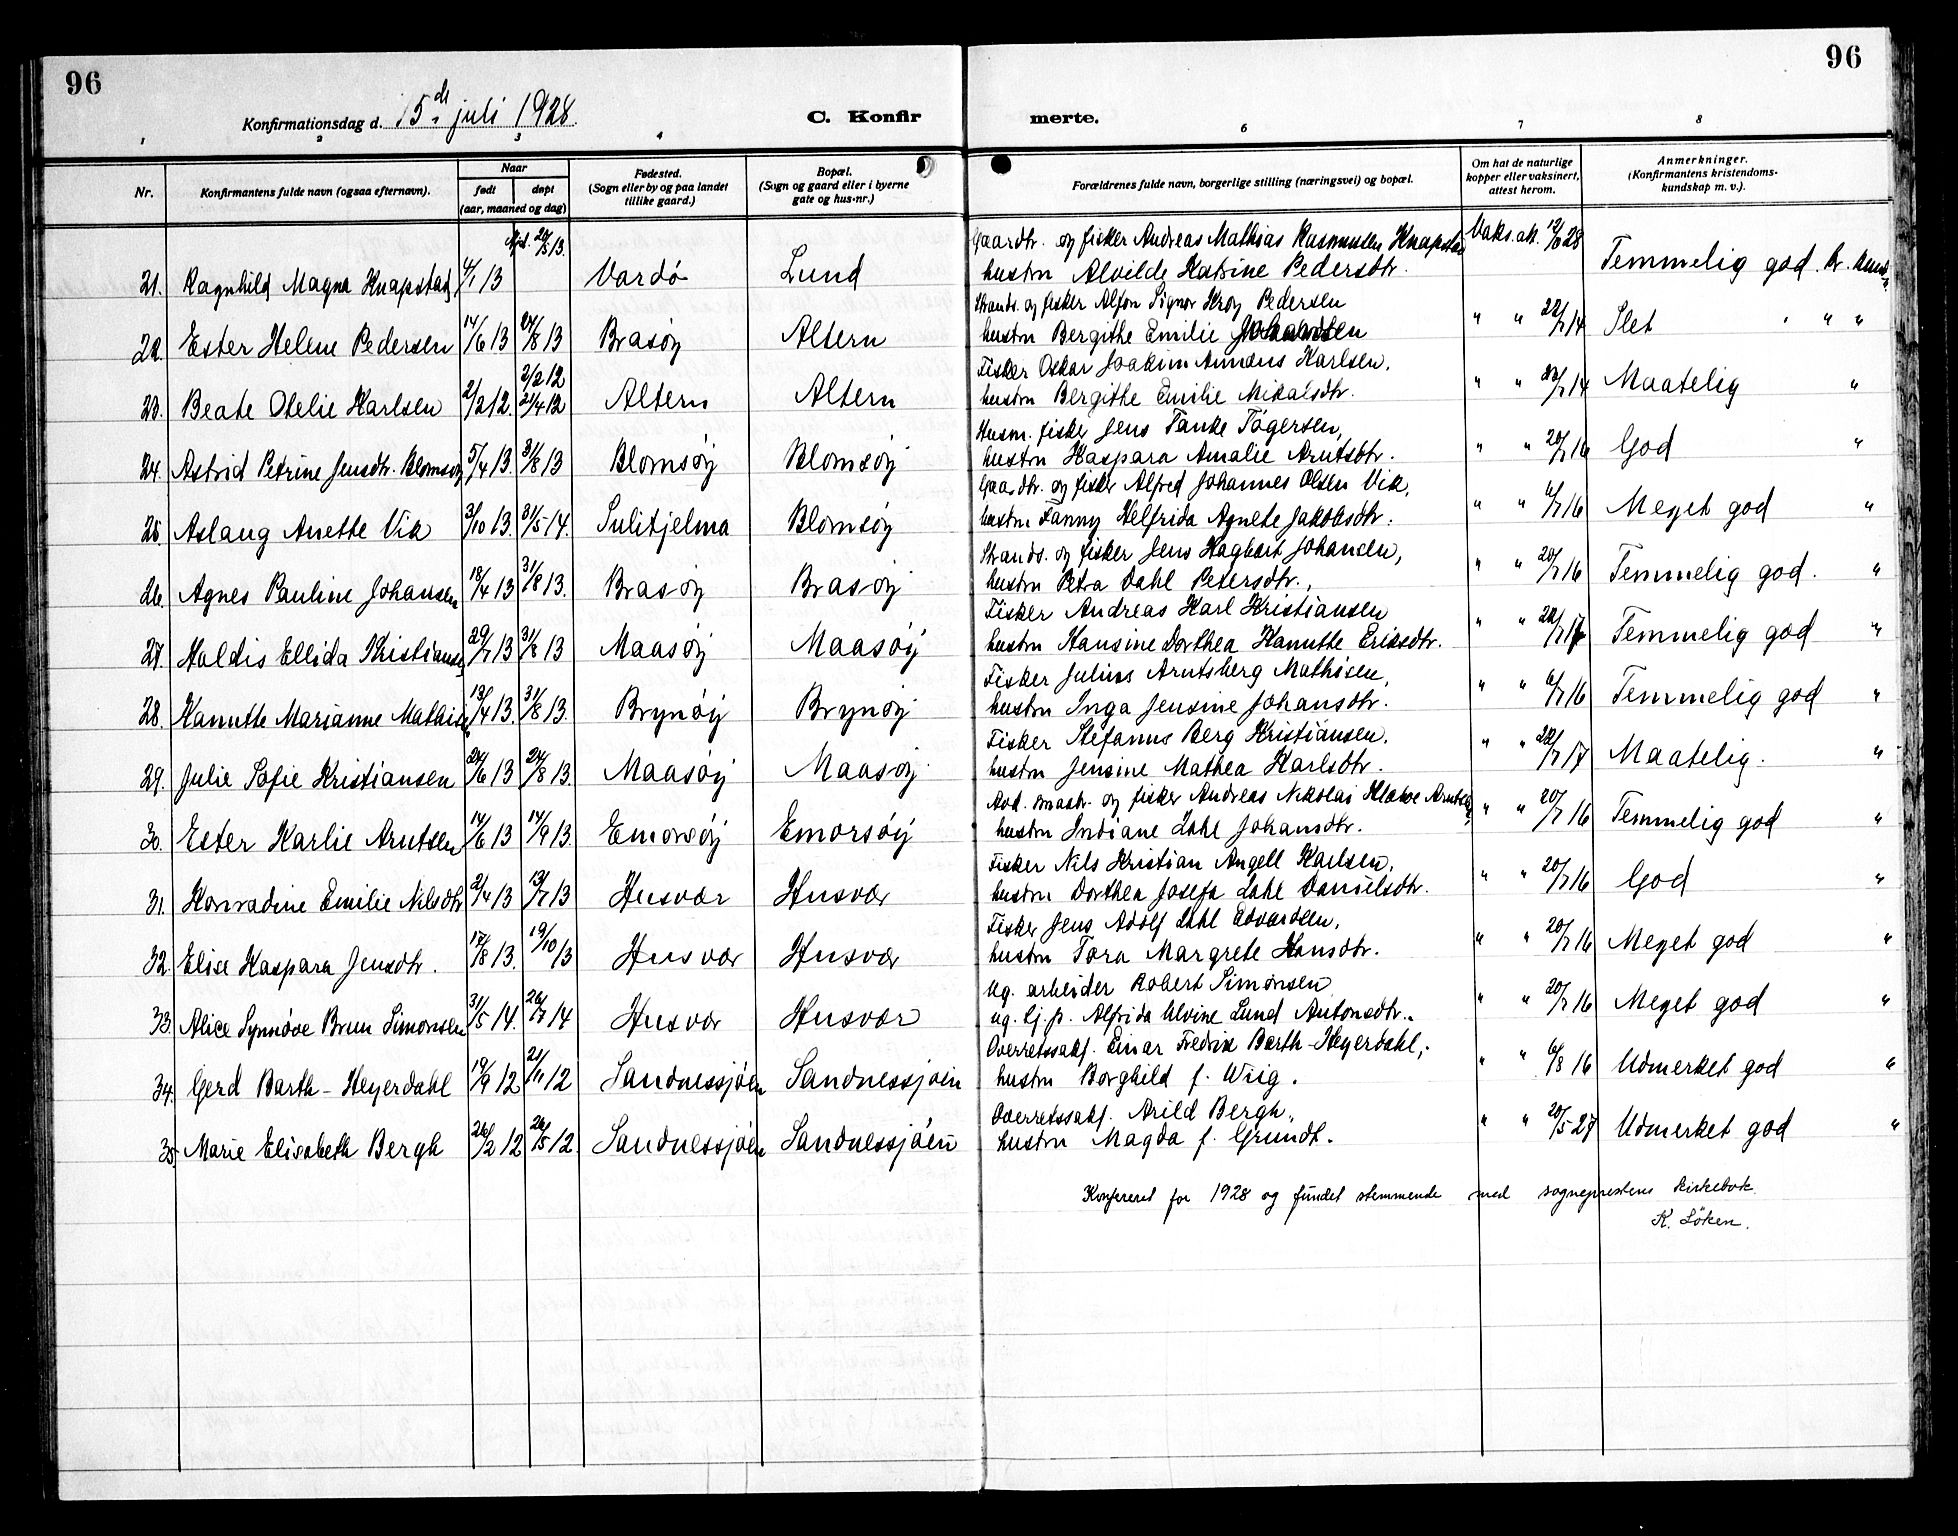 96
96
Konfirmationsdag d. 15de juli 1928.
C. Konfir
merte.
1 2 3 4 6 7 8
Nr.
Konfirmantens fulde navn (ogsaa efternavn).
Naar
født
døpt
(aar, maaned og dag)
Fødested.
(Sogn eller by og paa landet
tillike gaard.)
Bopæl.
(Sogn og gaard eller i byerne
gate og hus-nr.)
Forældrenes fulde navn, borgerlige stilling (næringsvei) og bopæl.
Om hat de naturlige
kopper eller vaksinert,
attest herom.
Anmerkninger.
(Konfirmantens kristendoms-
kundskap m. v.).
Gaardbr. og fisker Andreas Mathias Rasmussen Knapstad
21. Ragnhild Magna Knapstad 13 20/5 13. Vardø Lund hustru Alvilde Katrine Pedersdtr. Vaks. att. 28 Temmelig god. Kr.
Strands. og fisker Alfon Signor Krog Pedersen
22. Ester Helene Pedersen 14/6 13 24/8 13 Brasøy Altern hustru Bergithe Emilie " " 22/7 14 Slet " "
Fisker Oskar Joakim Amdeus Karlsen,
23. Beate Otelie Karlsen 2/2 12. 2/2 12 21/4 12 Altern Altern hustru Bergithe Emilie Mikalsdtr. " " 22/7 14 Maatelig "
Husm. fisker Jens Tanke Tøgersen,
24. Astrid Petrine Jensdtr. Blomsøy 5/4 13. 31/8 13 Blomsøy Blomsøy hustru Kaspara Amalie Arntsdtr. " " 20/7 16 God "
Gaardbr. og fisker Alfred Johannes Olsen Vik,
25. Aslaug Anette Vik 3/10 13. 31/5 14. Sulitjelma Blomsøy hustru Fanny Helfrida Agnete Jakobsdtr. " " 6/7 16 Meget god "
Strands. og fisker Jens Hagbart Johansen,
26. Agnes Pauline Johansen 18/4 13 31/8 13. Brasøy Brasøy hustru Petra Dahl Petersdtr., " " 20/7 16 Temmelig god. "
Fisker Andreas Karl Kristiansen
27. Haldis Ellida Kristiansen 29/7 13 31/8 13 Maasøy Maasøy hustru Hansine Dorthea Hanutte Eriksdtr. " " Temmelig god "
Fisker Julius Arntsberg Mathisen,
28. Hanutte Marianne Mathisen 13/4 13. 31/8 13. Brynøy Brynøy hustru Inga Jensine Johansdtr. " " 6/7 16 Temmelig god "
Fisker Stefanus Berg Kristiansen.
29. Julie Sofie Kristiansen 24/6 13 24/8 13. Maasøy Maasøy hustru Jensine Mathea Karlsdtr. " " 17 Maatelig. "
og fisker Andreas Nikolai Arntsen,
30. Ester Karlie Arntsen 14/6 13 14/9 13. Emorsøy Emorsøy hustru Indiane Lohl Johansdtr. " " 20/7 16 Temmelig god "
Fisker Nils Kristian Angell Karlsen,
31. Konradine Emilie Nilsdtr 2/4 13 13/7 13 Husvær Husvær hustru Dorthea Josefa Lohl Danielsdtr. " " 20/7 16 God "
Fisker Jens Adolf Lohl Edvardsen,
32. Elise Kaspara Jensdtr. 17/8 13. 19/10 13 Husvær Husvær hustru Tora Margrete Hansdtr. " " 20/7 16 Meget god "
Ug. arbeider Robert Simonsen
33. Alice Synnøve Brun Simonsen 31/5 14. 26/7 14 Husvær Husvær ug. tj.p. Alfrida Alvine Lund Antonsdtr. " " 20/7 16 Meget god "
Overretssakf. Einar Fredrik Barth-Heyerdahl,
34. Gerd Barth-Heyerdahl 19/9 12 21/11 12 Sandnessjøen Sandnessjøen hustru Borghild f. Wiig. " " 6/8 16 Udmerket god "
Overretssakf. Arild Bergh,
35. Marie Elisabeth Bergh 26/2 12 26/5 12 Sandnessjøen Sandnessjøen hustru Magda f. Grundt. " " 20/5 27 Udmerket god "
Konfereret for 1928 og fundet stemmende med sogneprestens kirkebok.
K. Löken.